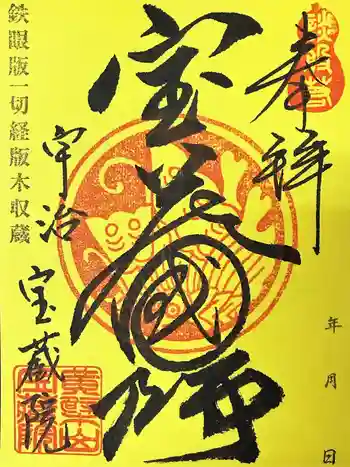 奉拝
年月日
宝蔵國師
宇治
宝蔵院
鉄眼版一切経版木収蔵